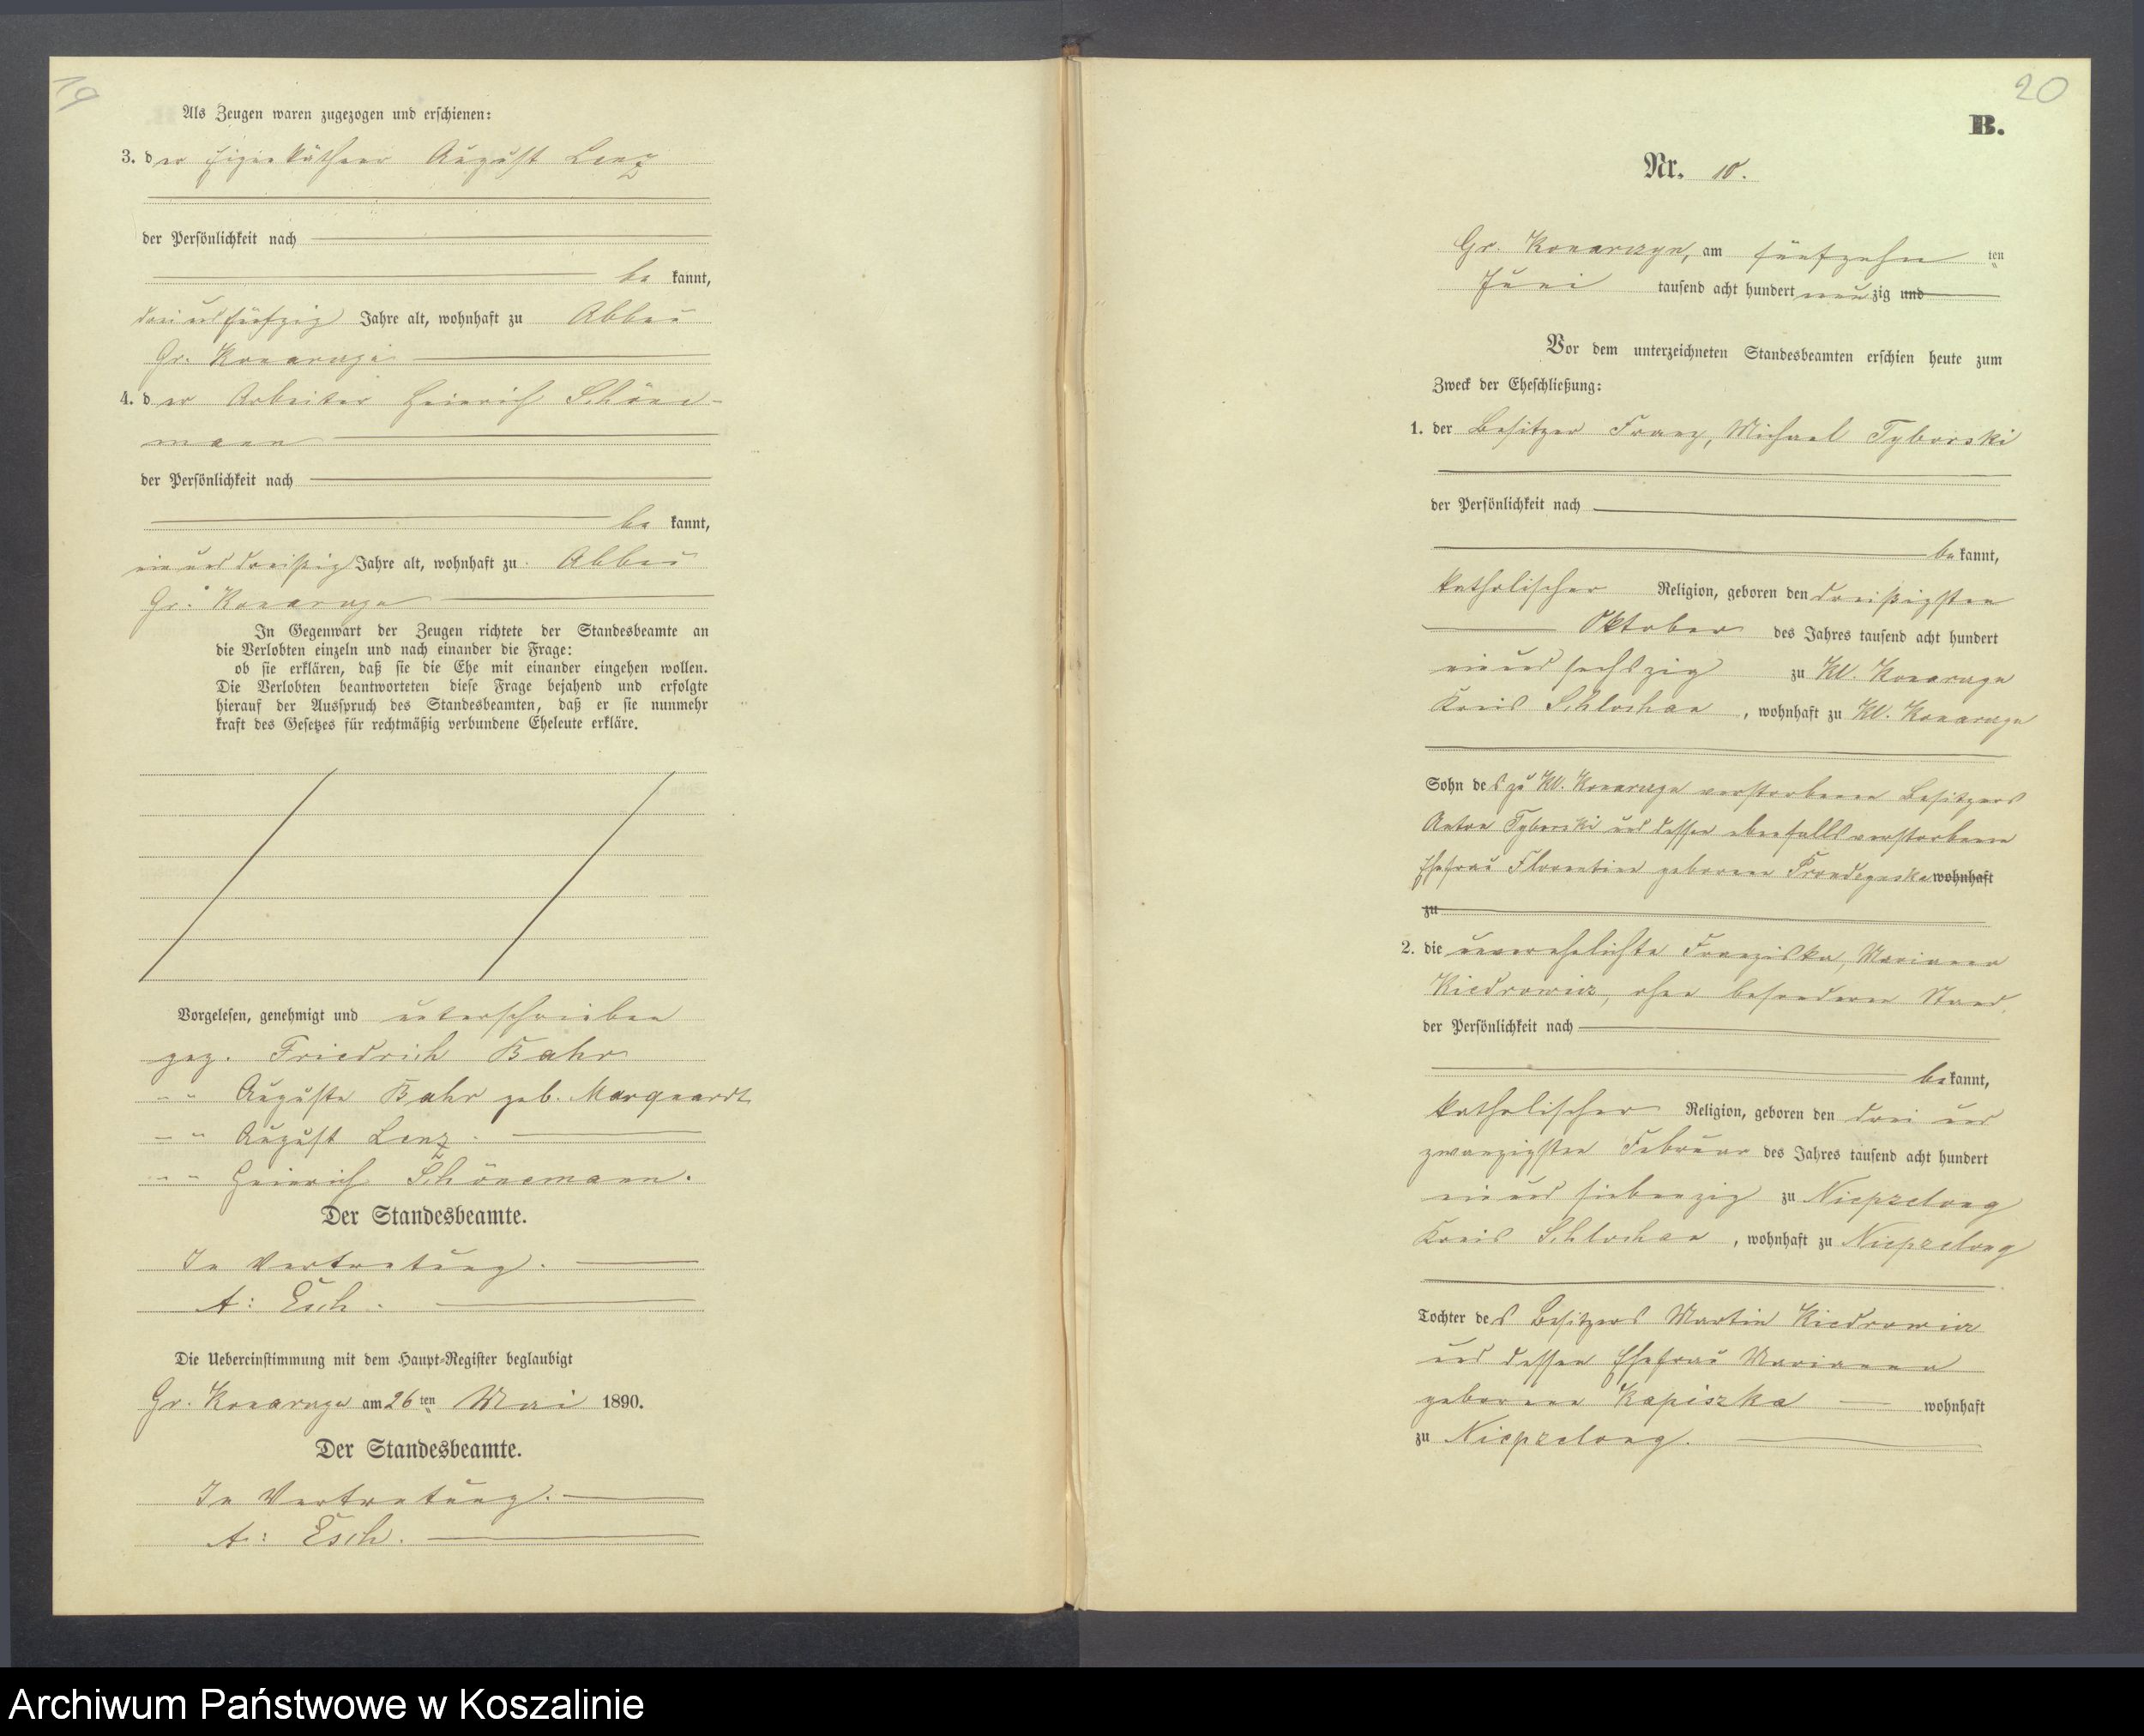 19
Als Zeugen waren zugezogen und erschienen:
3. der Eigenkäthner August Lenz
der Persönlichkeit nach
be kannt,
drei und fünfzig Jahre alt, wohnhaft zu Abbau
Gr. Konarczyn
4. der Arbeiter Heinrich Schöne-
mann
der Persönlichkeit nach
be kannt,
ein und dreißig Jahre alt, wohnhaft zu Abbau
Gr. Konarczyn
In Gegenwart der Zeugen richtete der Standesbeamte an
die Verlobten einzeln und nach einander die Frage:
ob sie erklären, daß sie die Ehe mit einander eingehen wollen.
Die Verlobten beantworteten diese Frage bejahend und erfolgte
hierauf der Ausspruch des Standesbeamten, daß er sie nunmehr
kraft des Gesetzes für rechtmäßig verbundene Eheleute erkläre.
Vorgelesen, genehmigt und unterschrieben
gez. Friedrich Bahr
" " Auguste Bahr geb. Marquardt
" " August Lenz.
" " Heinrich Schönemann.
Der Standesbeamte.
In Vertretung.
A: Esch.
Die Uebereinstimmung mit dem Haupt-Register beglaubigt
Gr. Konarczyn am 26 ten Mai 1890.
Der Standesbeamte.
In Vertretung.
A: Esch.
20
B.
Nr. 10.
Gr. Konarczyn, am fünfzehn ten
Juni tausend acht hundert neunzig und
Vor dem unterzeichneten Standesbeamten erschien heute zum
Zweck der Eheschließung:
1. der Besitzer Franz, Michael Tyborski
der Persönlichkeit nach
be kannt,
katholischer Religion, geboren den dreißigsten
Oktober des Jahres tausend acht hundert
ein und sechszig zu Kl. Konarczyn
Kreis Schlochau, wohnhaft zu Kl. Konarczyn
Sohn des zu Kl. Konarczyn verstorbenen Besitzers
Anton Tyborski und dessen ebenfalls verstorbene
Ehefrau Florentine geborene wohnhaft
zu
2. die unverehelichte Franziska, Marianna
Kiedrowicz, ohne besonderen Stand,
der Persönlichkeit nach
be kannt,
katholischer Religion, geboren den drei und
zwanzigsten Februar des Jahres tausend acht hundert
ein und siebenzig zu Niepszelong
Kreis Schlochau, wohnhaft zu Niepszelong
Tochter des Besitzers Martin Kiedrowicz
und dessen Ehefrau Marianna
geborene Kapiszka wohnhaft
zu Niepszelong.
Archiwum Państwowe w Koszalinie